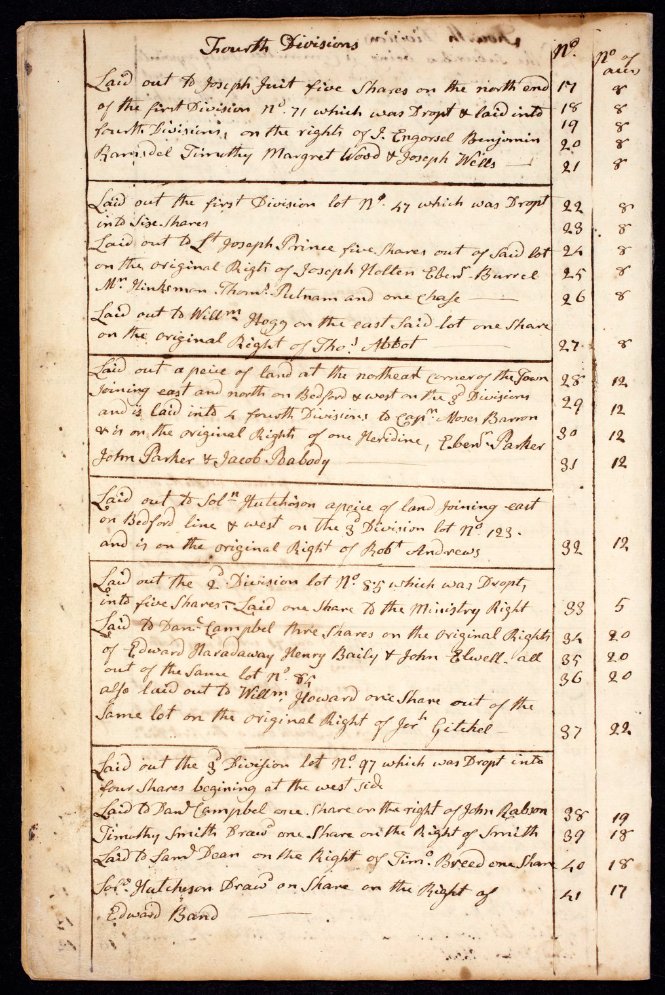 Fourth Divisions No. No of acrs
Laid out to Joseph Juit five Shares on the north end 17 8
of the first Division No. 71 which was Dropt & laid into 18 8
fourth Divisions, on the rights of J. Engorsel Benjomin 19 8
Ramsdel Timothy Margret Wood & Joseph Wells — 20 8
21 8
Laid out the first Division lot No. 47 which was Dropt 22 8
into Sixe Shares 23 8
Laid out to Lt Joseph Prince five Shares out of Said lot 24 8
on the original Rigts of Joseph Hollen Ebenr Burrel 25 8
Mr. Hinksman Thoms Putnam and one Chase — 26 8
Laid out to Willm Hogg on the east Said lot one Share
on the original Right of Thos Abbot — 27 8
Laid out a peice of land at the northeast corner of the Town 28 12
Joining east and north on Bedford & west on the 3d Divisions 29 12
and is laid into 4 fourth Divisions to Capn Moses Barron
& is on the original Rights of one Heridine, Ebenr Parker 30 12
John Parker & Jacob Pabody — 31 12
Laid out to Soln Hutchison a peice of land Joining east
on Bedford line & west on the 3d Division lot No 123.
and is on the original Right of Robt Andrews 32 12
Laid out the 2d Division lot No 85 which was Dropt,
into five Shares, Laid one Share to the Ministry Right 33 5
Laid to Danl Campbel thre Shares on the original Rights 34 20
of Edward Haradaway Henry Baily & John Elwell all 35 20
out of the Same lot No 85 36 20
also laid out to Willm Howard one Share out of the
Same lot on the original Right of Jerh Gitchel — 37 22
Laid out the 3d Division lot No 97 which was Dropt into
four Shares begining at the west side
Laid to Danl Campbel one Share on the right of John Rabson 38 19
Timothy Smith Drawd one Share on the Right of Smith 39 18
Laid to Saml Dean on the Right of Timo Breed one Share 40 18
Solo Hutcheson Drawd on Share on the Right of 41 17
Edward Band —